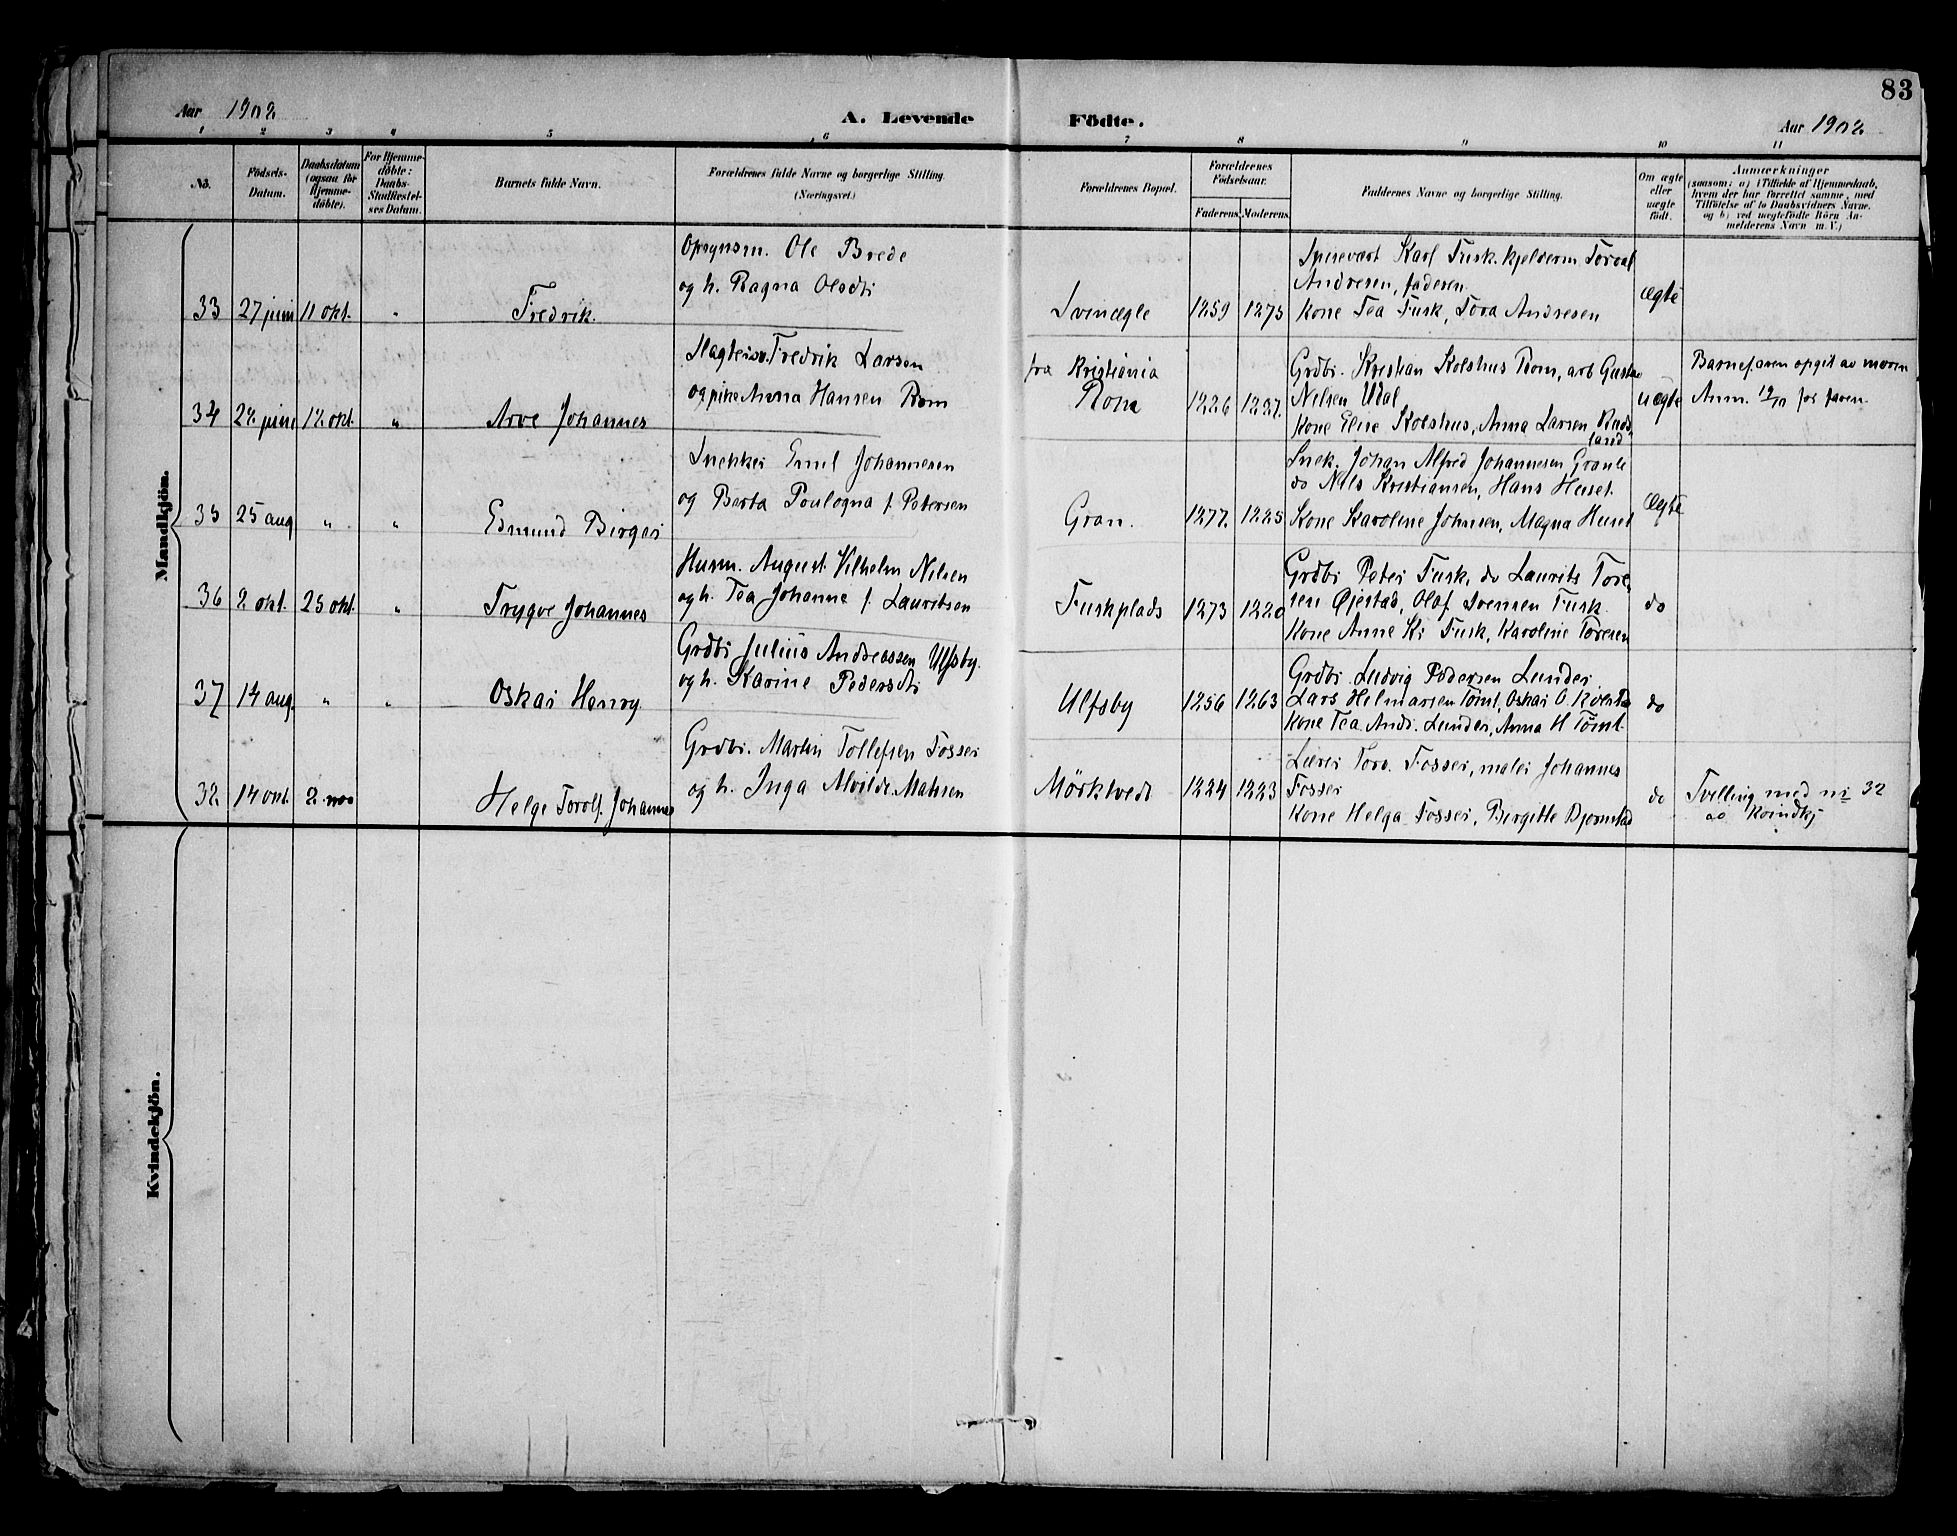 83
Aar 1902
A. Levende Födte.
Aar 1902
1 2 3 4 5 6 7 8 9 10 11
No.
Födsels-Datum.
Daabsdatum (ogsaa for Hjemme-döbte).
For Hjemme-döbte: Daabs-Stadfæstel-ses Datum.
Barnets fulde Navn.
Forældrenes fulde Navne og borgerlige Stilling.
(Næringsvei.)
Forældrenes Bopæl.
Forældrenes Födselsaar.
Faderens. Moderens.
Faddernes Navne og borgerlige Stilling.
Om ægte eller uægte födt.
Anmærkninger
(saasom: a) i Tilfælde af Hjemmedaab,
hvem der har forrettet samme, med
Tilföielse af to Daabsvidners Navne.
og b) ved uægtefödte Börn An-
melderens Navn m. V.)
Mandkjön.
Opsynsm. Ole Brede
og h. Ragna Olsdtr
33 27 juni 11 okt. " Fredrik.
Svinægle 1859 1875
Spisevært Karl Fusk. kjelderm Torval
Andresen, faderen.
Kone Tea Fusk, Tora Andresen
Ægte
Slagtersv. Fredrik Larsen
og pike Anna Hansen Rom
34 28 juni 12 okt. " Arve Johannes
fra Kristiania
Rom 1886 1887.
Grdbr. Kristian Kolshus Rom, arb Gustav
Nilsen Udal
Kone Eline Kolshus, Anna Larsen Ruds
land
Uægte
Barnefaren opgit av moren
Anm. 12/10 for faren.
Snekker Emil Johannesen
og Berta Poulogna f. Petersen
35 25 aug " " Edmund Birger
Gran. 1877. 1885
Snek. Johan Alfred Johannesen Granli
do Nils Kristiansen, Hans Huset.
Kone Karoline Johnsen, Magna Huset
Ægte
Husm. August Vilhelm Nilsen
og h. Tea Johanne f. Lauritsen
36 2 okt. 25 okt. " Trygve Johannes
Fuskplads 1873 1880
Grdbr Peter Fusk, do Laurits Tore
sen Øjestad, Olaf Svensen Fusk.
Kone Anne Kr Fusk, Karoline Toresen
do
Grdbr Julius Andreassen Ulfsby.
og h. Karine Pedersdtr
37 14 aug. " " Oskar Henry
Ulfsby 1856 1863
Grdbr. Ludvig Pedersen Lunder
Lars Helmarsen Tømt, Oskar O.
Kone Tea Andr. Lunder, Anna H Tømt.
do
Grdbr. Martin Tollefsen Fosser
og h. Inga Alvilde Matsen
38 14 okt. 2 nov Helge Torolf Johannes
Mörktvedt 1884 1883
Lærer Torv. Fosser, maler Johannes
Fosser
Kone Helga Fosser, Birgitte Bjørnstad
do
Tvilling med nr 32
av Kvindkj
Kvindekjön.